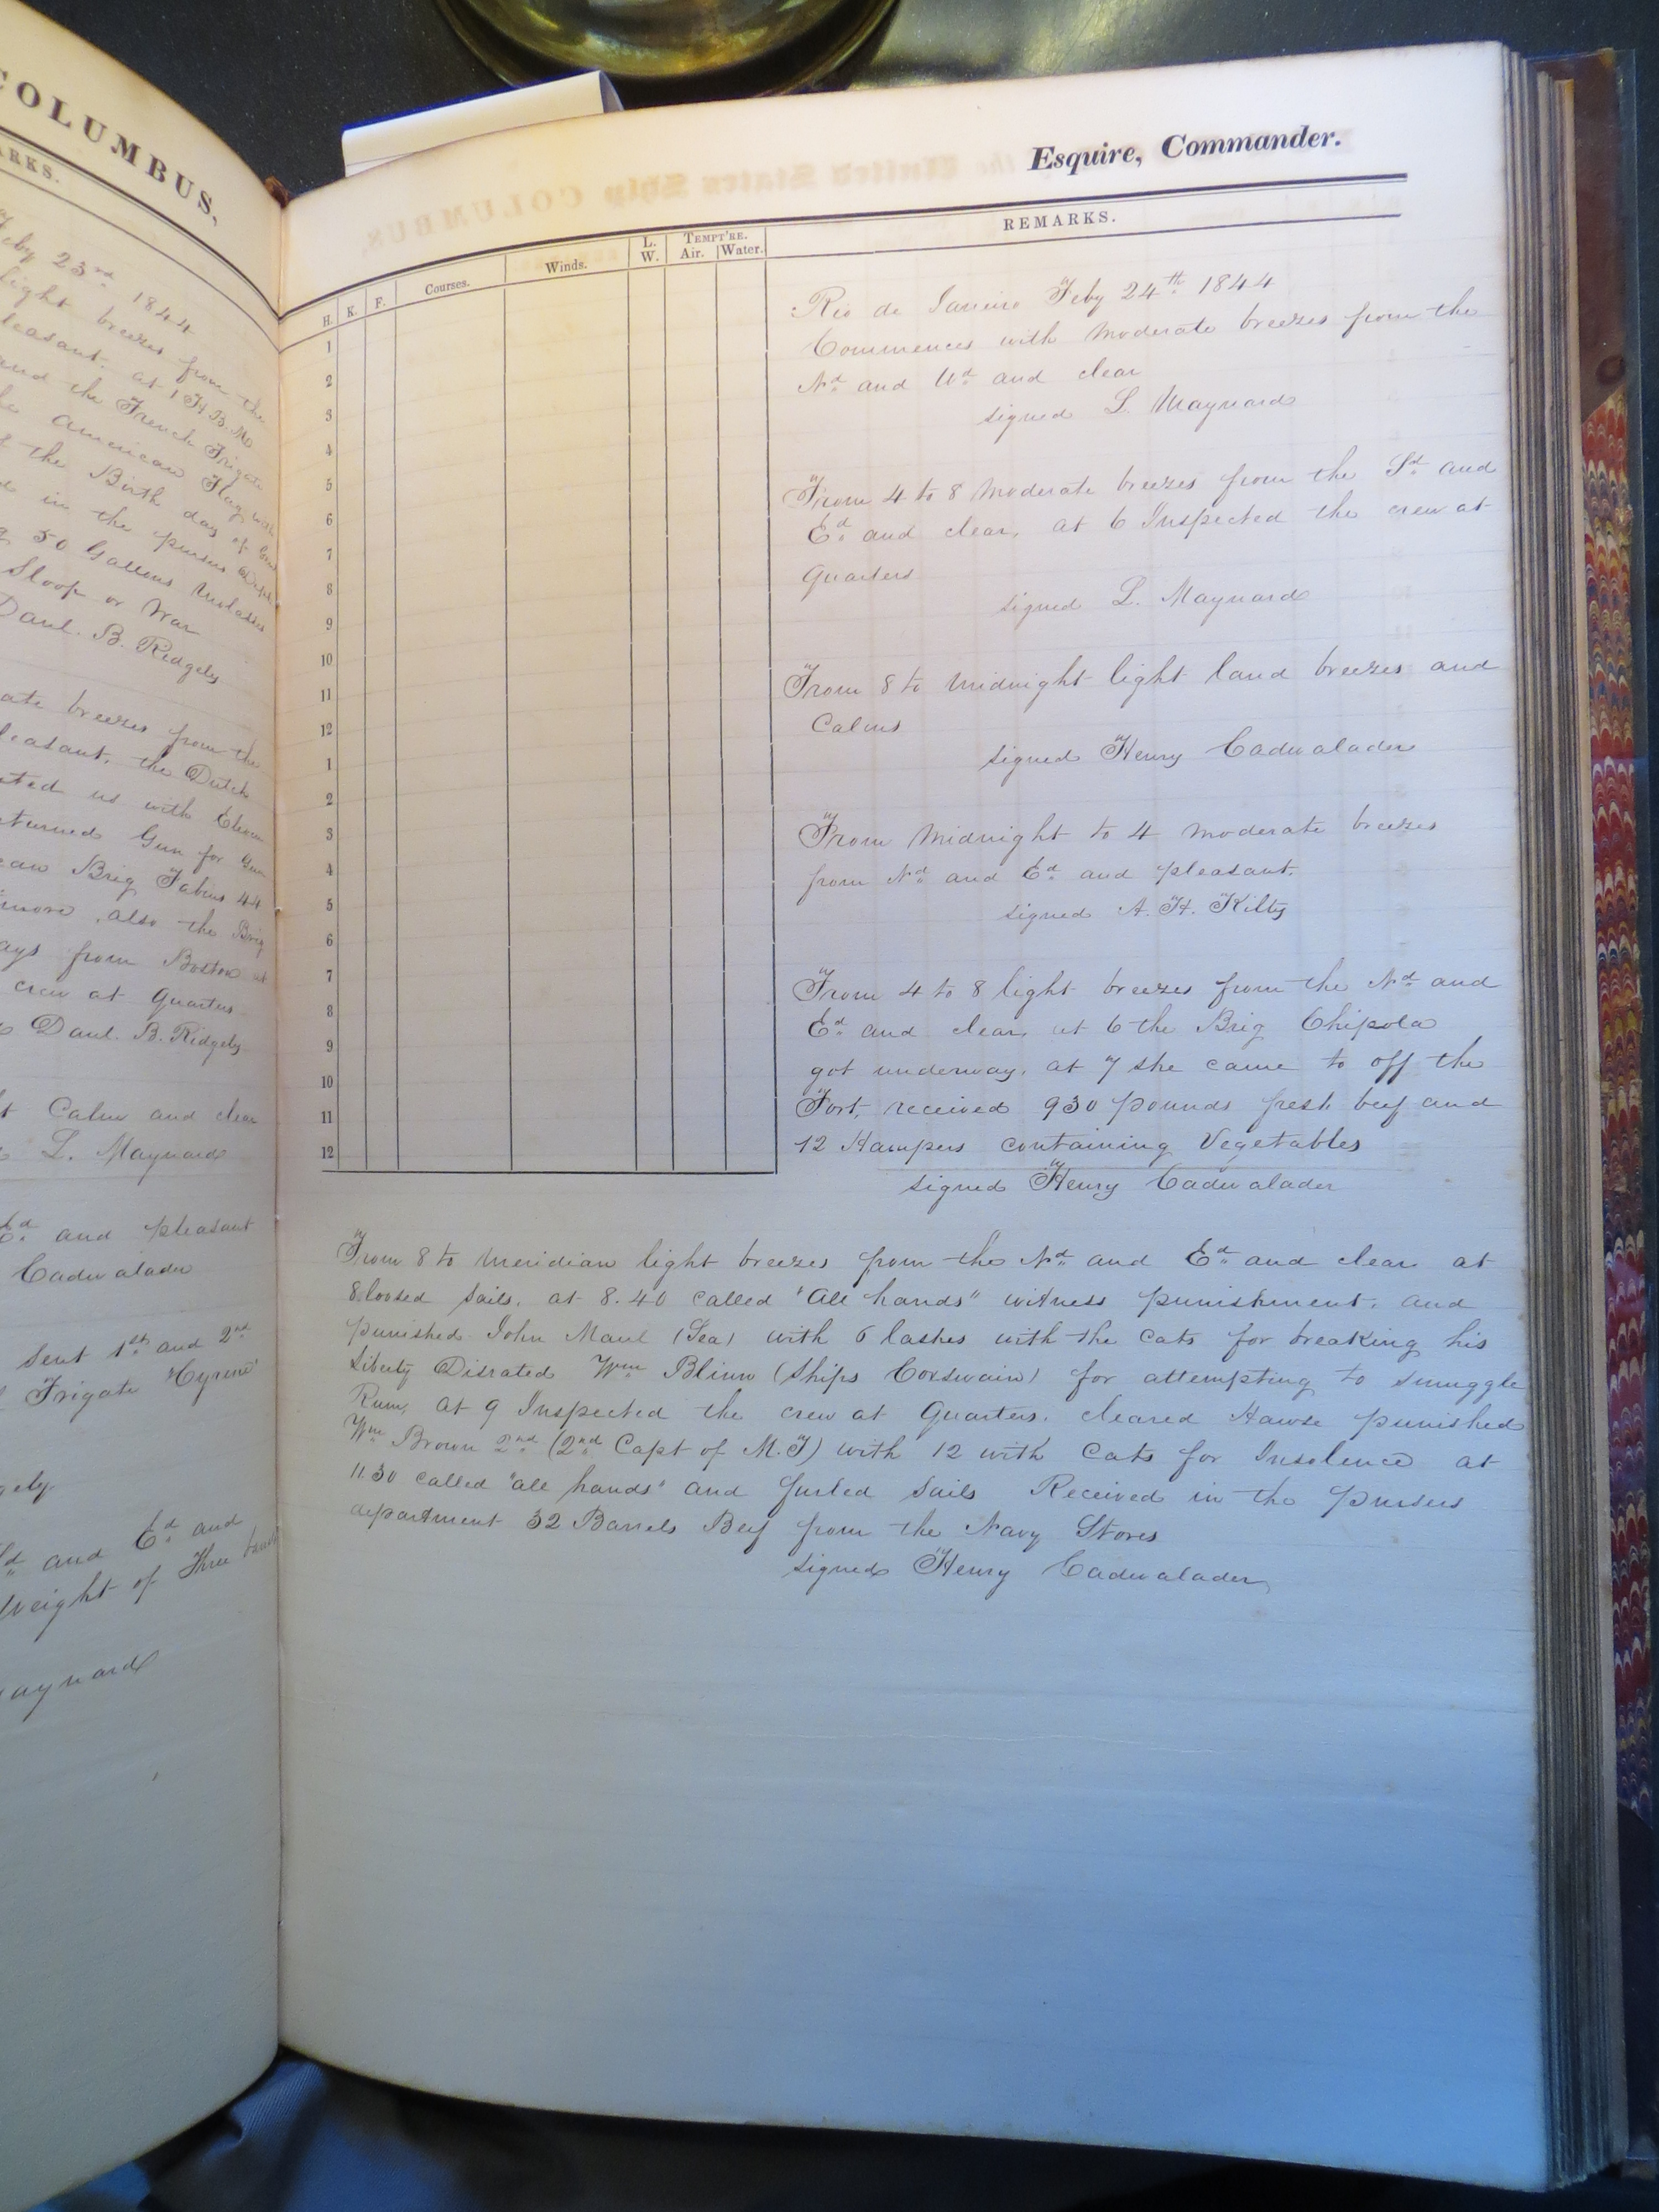 COLUMBUS,
ARKS.
Feby 23rd 1844
light breezes from the
leasant. at 1 H.B.M.
and the French Frigate
American Flag
the Birth day of
in the pursers
50 Gallons Molasses
Sloop or War
Danl. B. Ridgely
ate breezes from the
leasant, the Dutch
ted us with Eleven
turned Gun for Gun
Brig Fabius 44
imore, also the Brig
ays from Boston at
crew at Quarters
Danl. B. Ridgely
Calm and clear
L. Maynard
Ed and pleasant
Cadwalader
Sent 1st and 2nd
Frigate "Cyrene"
gely
and Ed and
Weight of Three
aynard
Esquire, Commander.
H. K. F. Courses. Winds. L. W. TEMPT'RE. Air. Water. REMARKS.
1
2
3
4
5
6
7
8
9
10
11
12
1
2
3
4
5
6
7
8
9
10
11
12
Rio de Janeiro Feby 24th 1844
Commences with moderate breezes from the
Nd and Wd and clear
signed L. Maynard
From 4 to 8 Moderate breezes from the Sd and
Ed and clear, at 6 Inspected the crew at
Quarters
signed L. Maynard
From 8 to Midnight light land breezes and
Calms
signed Henry Cadwalader
From Midnight to 4 moderate breezes
from Nd and Ed and pleasant.
signed A. H. Kilty
From 4 to 8 light breezes from the Nd and
Ed and clear, at 6 the Brig Chipola
got underway, at 7 she came to off the
Fort, received 930 pounds fresh beef and
12 Hampers containing Vegetables
signed Henry Cadwalader
From 8 to Meridian light breezes from the Nd and Ed and clear at
8 loosed Sails, at 8.40 called "All hands" witness punishment, and
punished John Maul (Sea) with 6 lashes with the Cats for breaking his
Liberty Disrated Wm Blinn (Ships Corswain) for attempting to smuggle
Rum, at 9 Inspected the crew at Quarters. cleared Hawse punished
Wm Brown 2nd (2nd Capt of M.T) with 12 with Cats for Insolence at
11.30 called "all hands" and furled Sails Received in the pursers
department 32 Barrels Beef from the Navy Stores
signed Henry Cadwalader